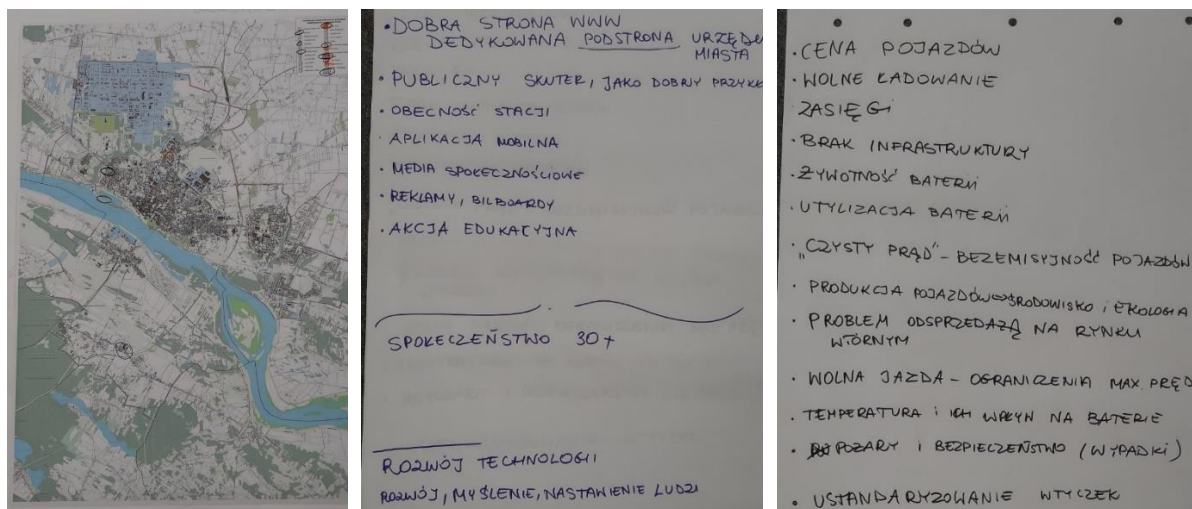 • DOBRA STRONA WWW
DEDYKOWANA PODSTRONA URZĘDU
MIASTA
• PUBLICZNY SKUTER, JAKO DOBRY
• OBECNOŚĆ STACJI
• APLIKACJA MOBILNA
• MEDIA SPOŁECZNOŚCIOWE
• REKLAMY, BILBOARDY
• AKCJA EDUKACYJNA
SPOŁECZEŃSTWO 30+
ROZWÓJ TECHNOLOGII
ROZWÓJ, MYŚLENIE, NASTAWIENIE LUDZI
• CENA POJAZDÓW
• WOLNE ŁADOWANIE
ZASIĘGI
• BRAK INFRASTRUKTURY
• ŻYWOTNOŚĆ BATERII
• UTYLIZACJA BATERII
• „CZYSTY PRĄD" – BEZEMISYJNOŚĆ POJAZDÓW
• PRODUKCJA POJAZDÓW ⇔ ŚRODOWISKO i EKOLOGIA
• PROBLEM ODSPRZEDAŻĄ NA RYNKU
WTÓRNYM
• WOLNA JAZDA – OGRANICZENIA MAX. PRĘD
• TEMPERATURA i ICH WPŁYW NA BATERIE
• POŻARY i BEZPIECZEŃSTWO (WYPADKI)
• USTANDARYZOWANIE WTYCZEK